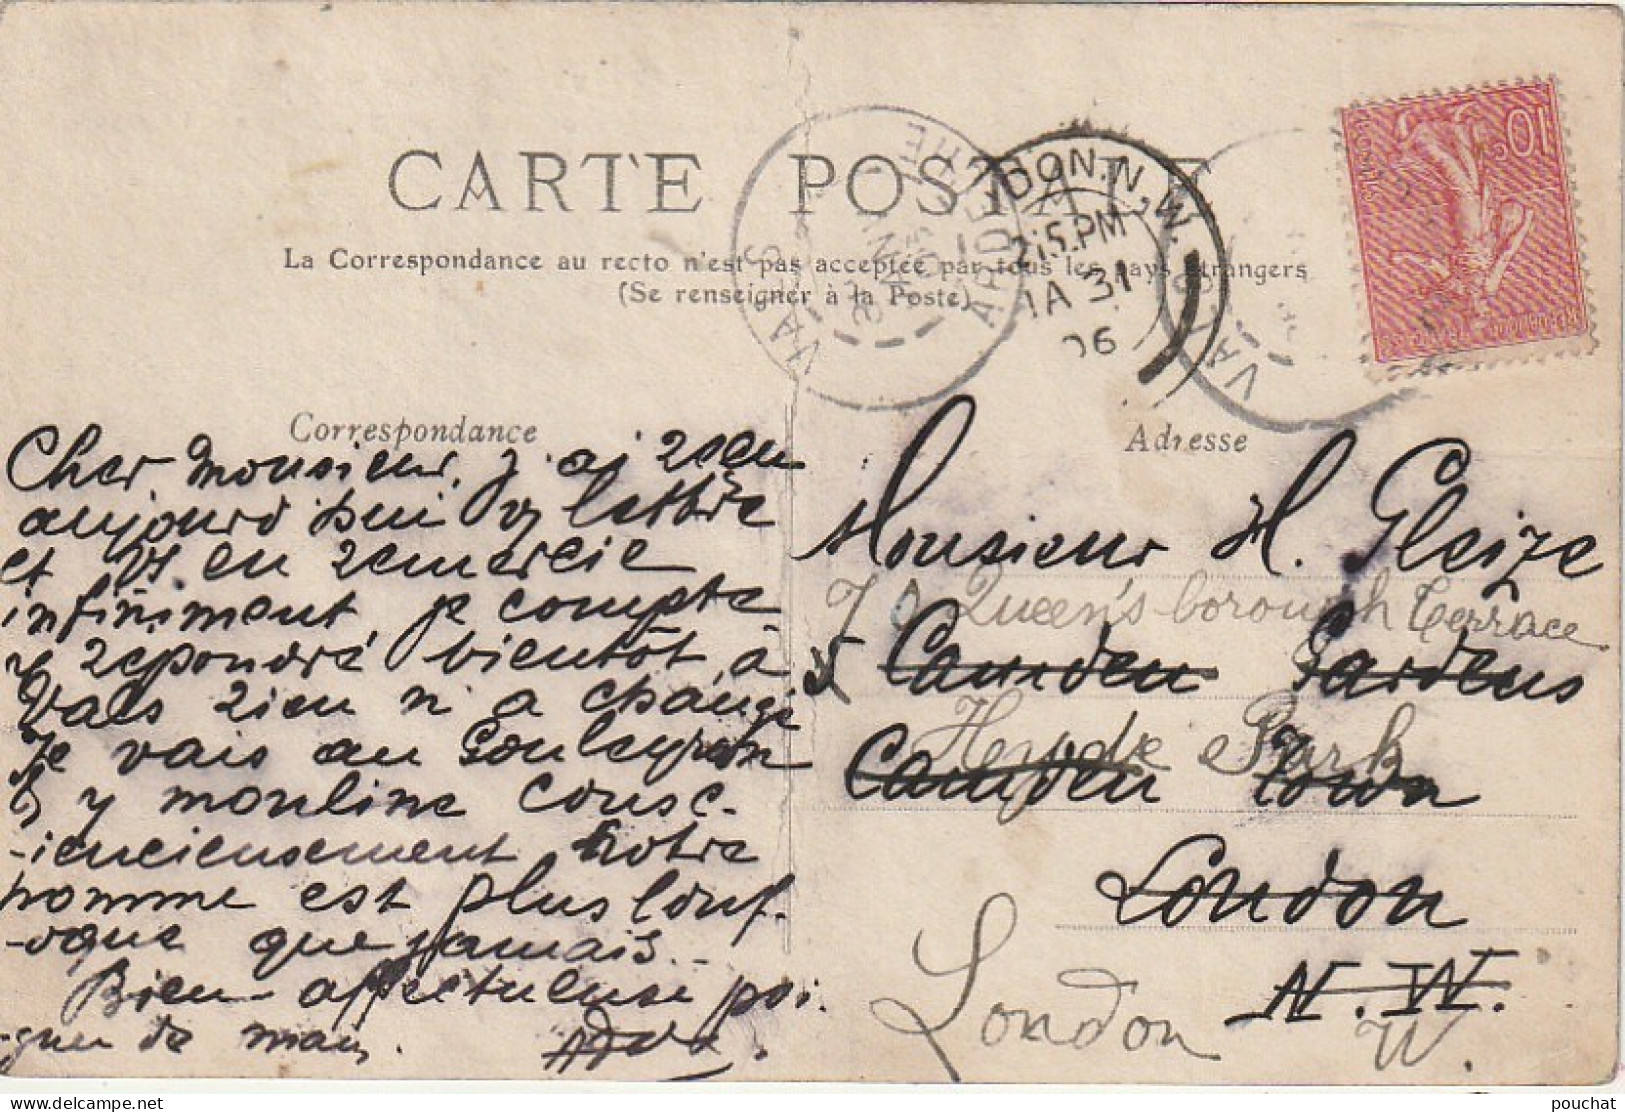 CARTE POSTALE
La Correspondance au recto n'est pas acceptée par tous les pays étrangers
(Se renseigner à la Poste)
VALS
ARDECHE
LONDON.N.W.
2.15.PM
JA 31
06
10c
Correspondance
Cher Monsieur, j'ai recu
aujourd'hui v/ lettre
et vs en remercie
infiniment, je compte
y repondre bientôt, à
Vals rien n'a changé
Je vais au Gouleyron
& y mouline consc-
-iencieusement notre
homme est plus louf-
-oque que jamais.
Bien affectueuse poi-
-gnee de main.
Adresse
Monsieur H. Gleize
70 Queen's borough Terrace
5 Camden Gardens
Heyde Park
Camden Town
London
N.W.
London W.
pouchat